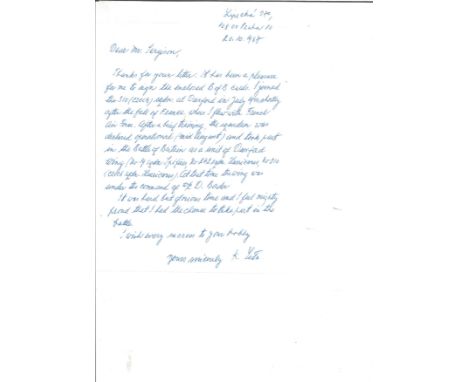 20.10.1987
Dear Mr. Ferguson,
Thanks for your letter. It has been a pleasure
for me to sign the enclosed B of B cards. I joined the
310 (Czech) sqdn. at Duxford in July 1940 shortly
after the fall of France, where I flew with French
Air Force. After a brief training, the squadron was
declared operational (mid August) and took part
in the Battle of Britain as a unit of Duxford
Wing (No 19 sqdn Spitfires, No 242 sqdn Hurricanes, No 310
Czech sqdn Hurricanes). At that time the wing was
under the command of D. Bader.
It was hard but glorious time and I feel mighty
proud that I had the chance to take part in the
battle.
I wish every success to your hobby
yours sincerely